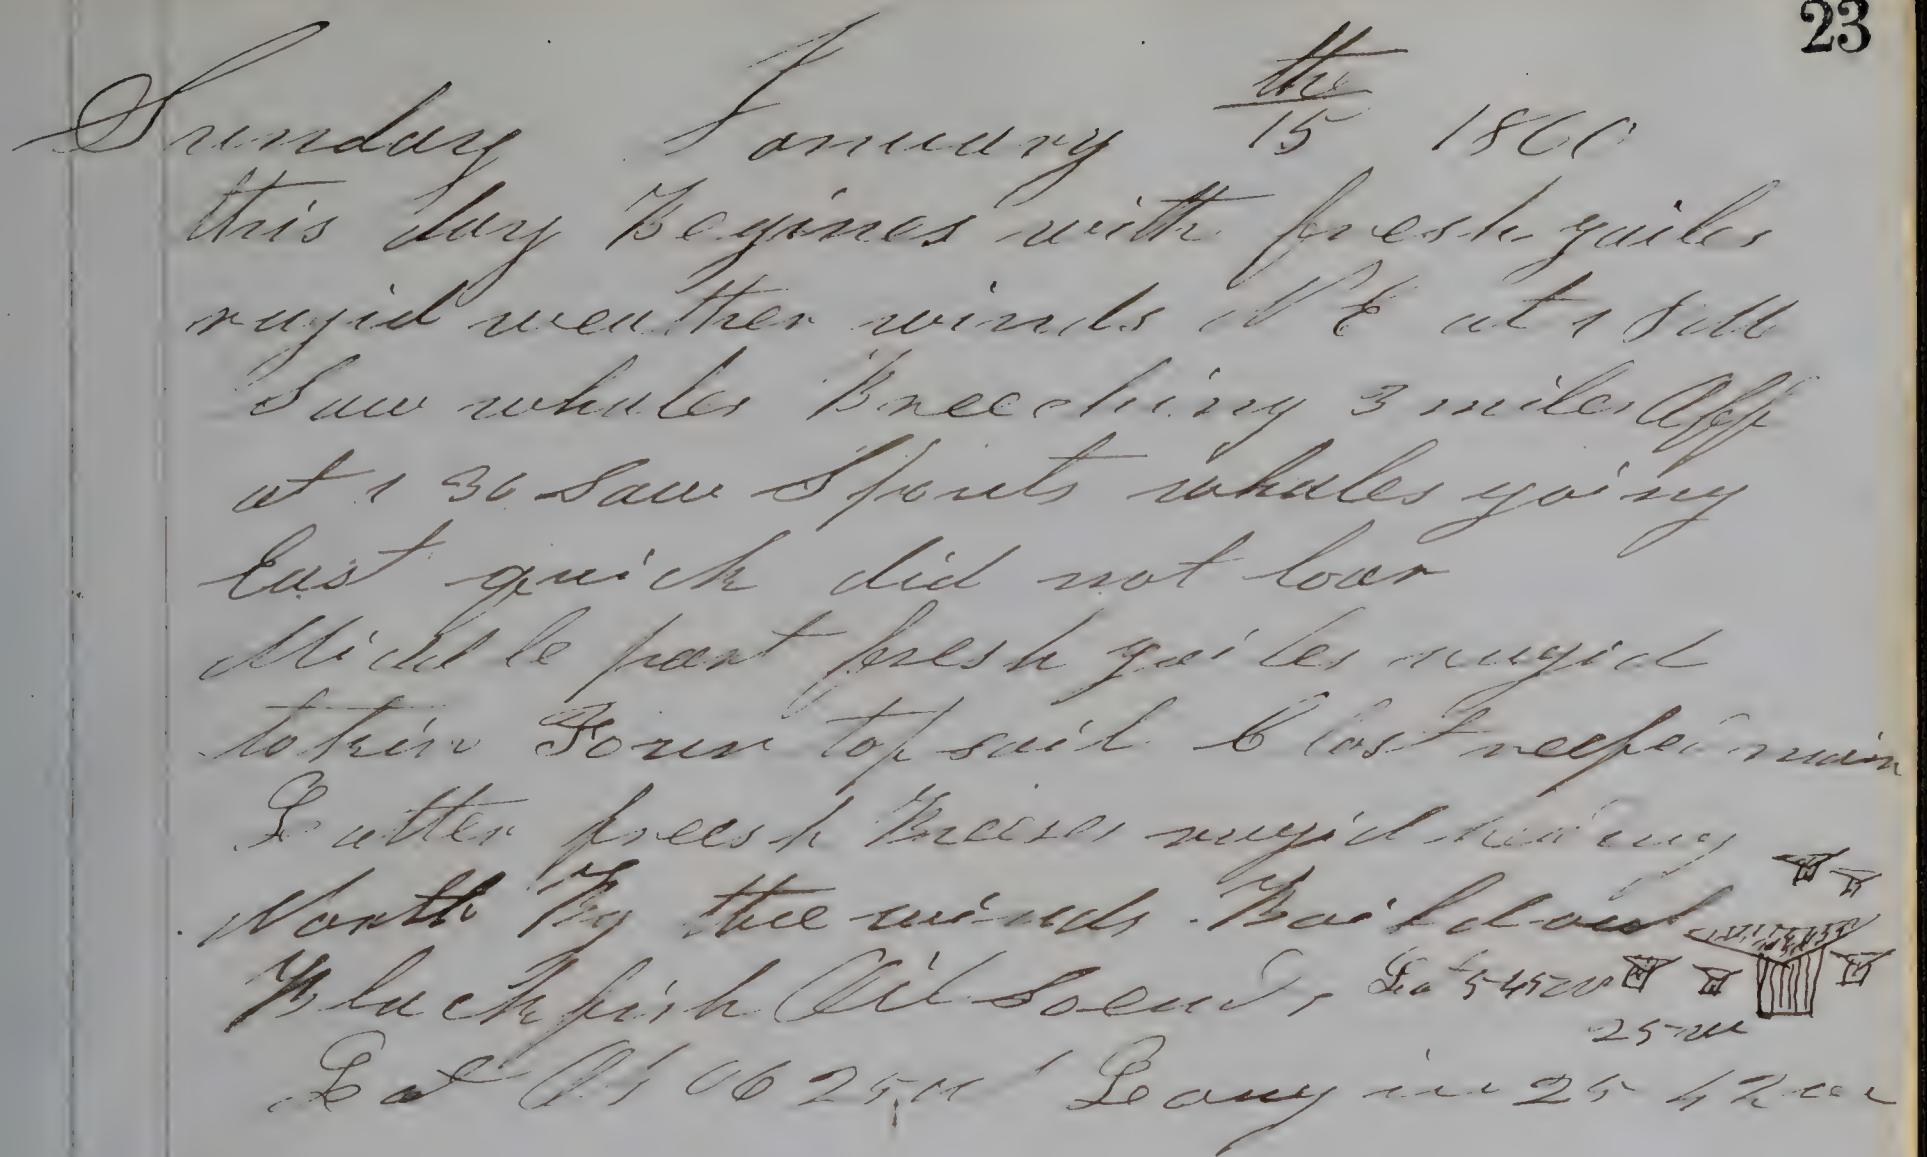 23
Sunday January 15th 1860
this day Begines with fresh gailes
rugid weather winds N E at 1
Saw whales Breeching 3 miles Off
at 1 30 Saw Spouts whales going
East quick did not loar
Middle part fresh gailes rugid
tokin Four top sail & Clost reefei main
Latter freesh Breeses rugid heding
North By the winds Boild out
Blackfish Oil
25
Lat 06 25 Long in 25 42